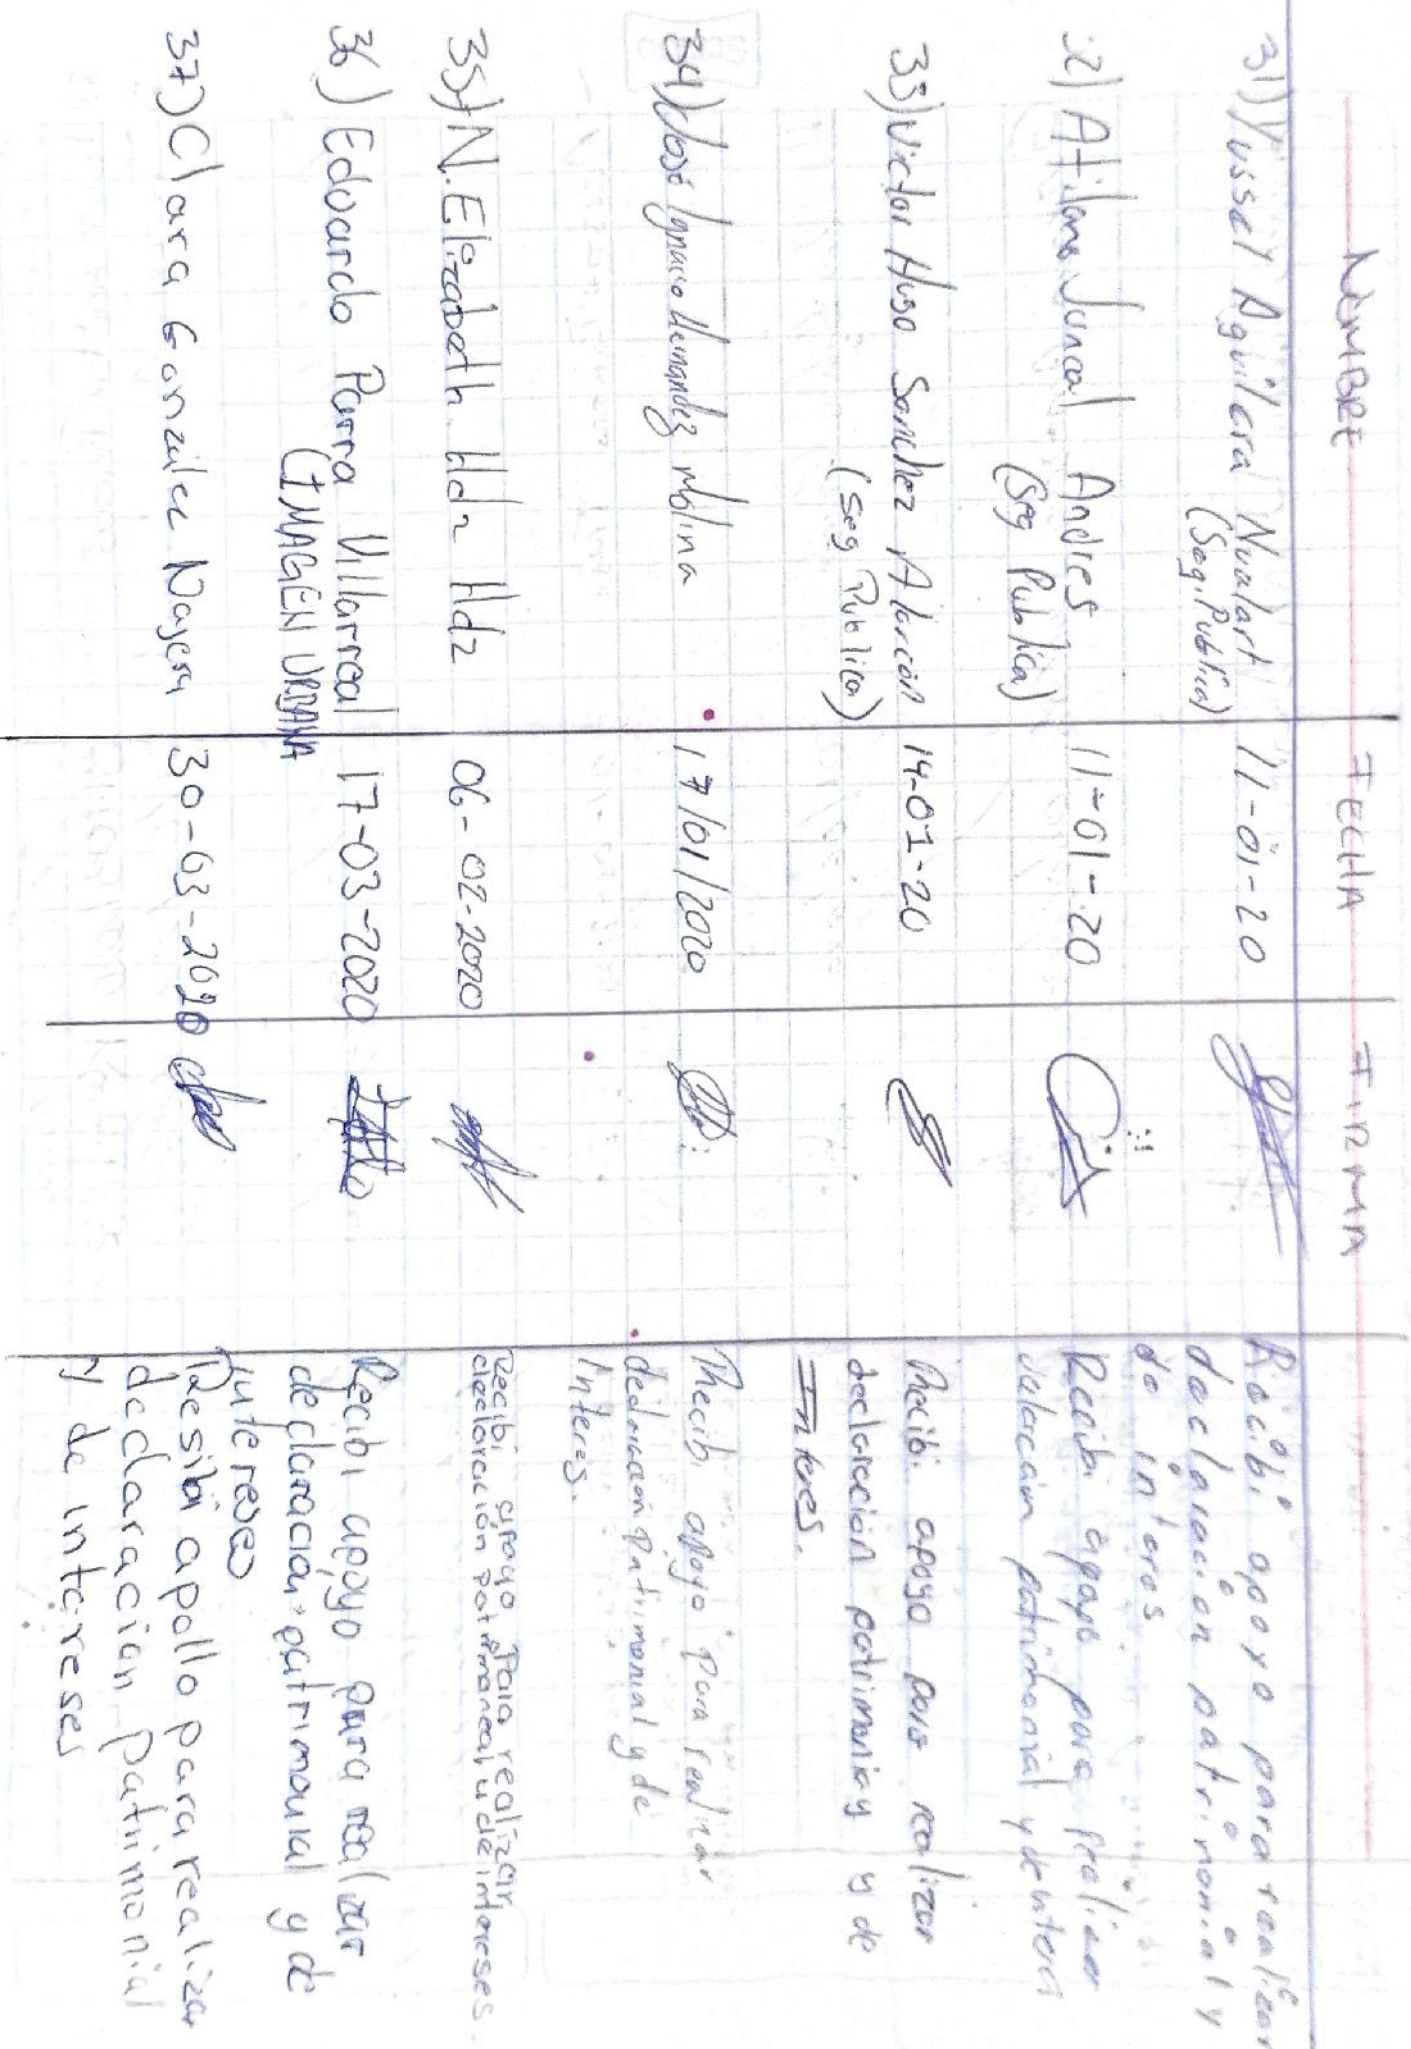 NOMBRE FECHA FIRMA
31) Yussel Aguilera Nualart 11-01-20 Recibi apoyo para realizar
(Seg. Publica) declaracion patrimonial y
de interes
32) Atilano Juncal Andres 11-01-20 Recibi apoyo para realizar
(Seg Publica) patrimonial y de
33) Victor Hugo Sanchez Alarcón 14-01-20 Recibi apoyo para realizar
(Seg Publica) declaración patrimonia y de
Interes.
34) José Ignacio Hernandez Molina 17/01/2020 Recibi apoyo Para realizar
declaración Patrimonial y de
Interes.
35) N. Elizabeth Hdz Hdz 06-02-2020 Recibi apoyo Para realizar
declaración patrimoneal y de intereses.
36) Eduardo Parra Villarreal 17-03-2020 Recibi apoyo para realizar
(IMAGEN URBANA declaración patrimonial y de
intereses
37) Clara Gonzalez Najera 30-03-2020 Resibi apollo para realizar
declaracion patrimonial
y de intereses